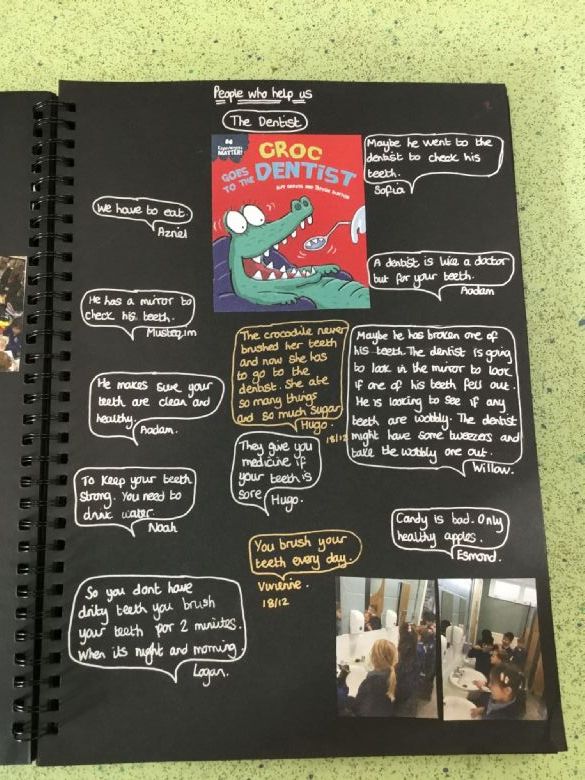 People who help us
The Dentist
Experiences
MATTER!
CROC
GOES
TO THE
DENTIST
Maybe he went to the
dentist to check his
teeth.
Sofia
We have to eat.
Azriel
A dentist is like a doctor
but for your teeth.
Aadam
He has a mirror to
check his teeth.
Musteqim
The crocodile never
brushed her teeth
and now she has
to go to the
dentist. She ate
so many things
and so much sugar
Hugo.
18/12
Maybe he has broken one of
his teeth. The dentist is going
to look in the mirror to look
if one of his teeth fell out.
He is looking to see if any
teeth are wobbly. The dentist
might have some tweezers and
take the wobbly one out.
Willow.
He makes sure your
teeth are clean and
healthy.
Aadam.
They give you
medicine if
your teeth is
sore
Hugo.
To keep your teeth
strong. You need to
drink water.
Noah
Candy is bad. Only
healthy apples.
Esmond.
You brush your
teeth every day.
Vivienne.
18/12
So you dont have
dirty teeth you brush
your teeth for 2 minutes.
When its night and morning.
Logan.